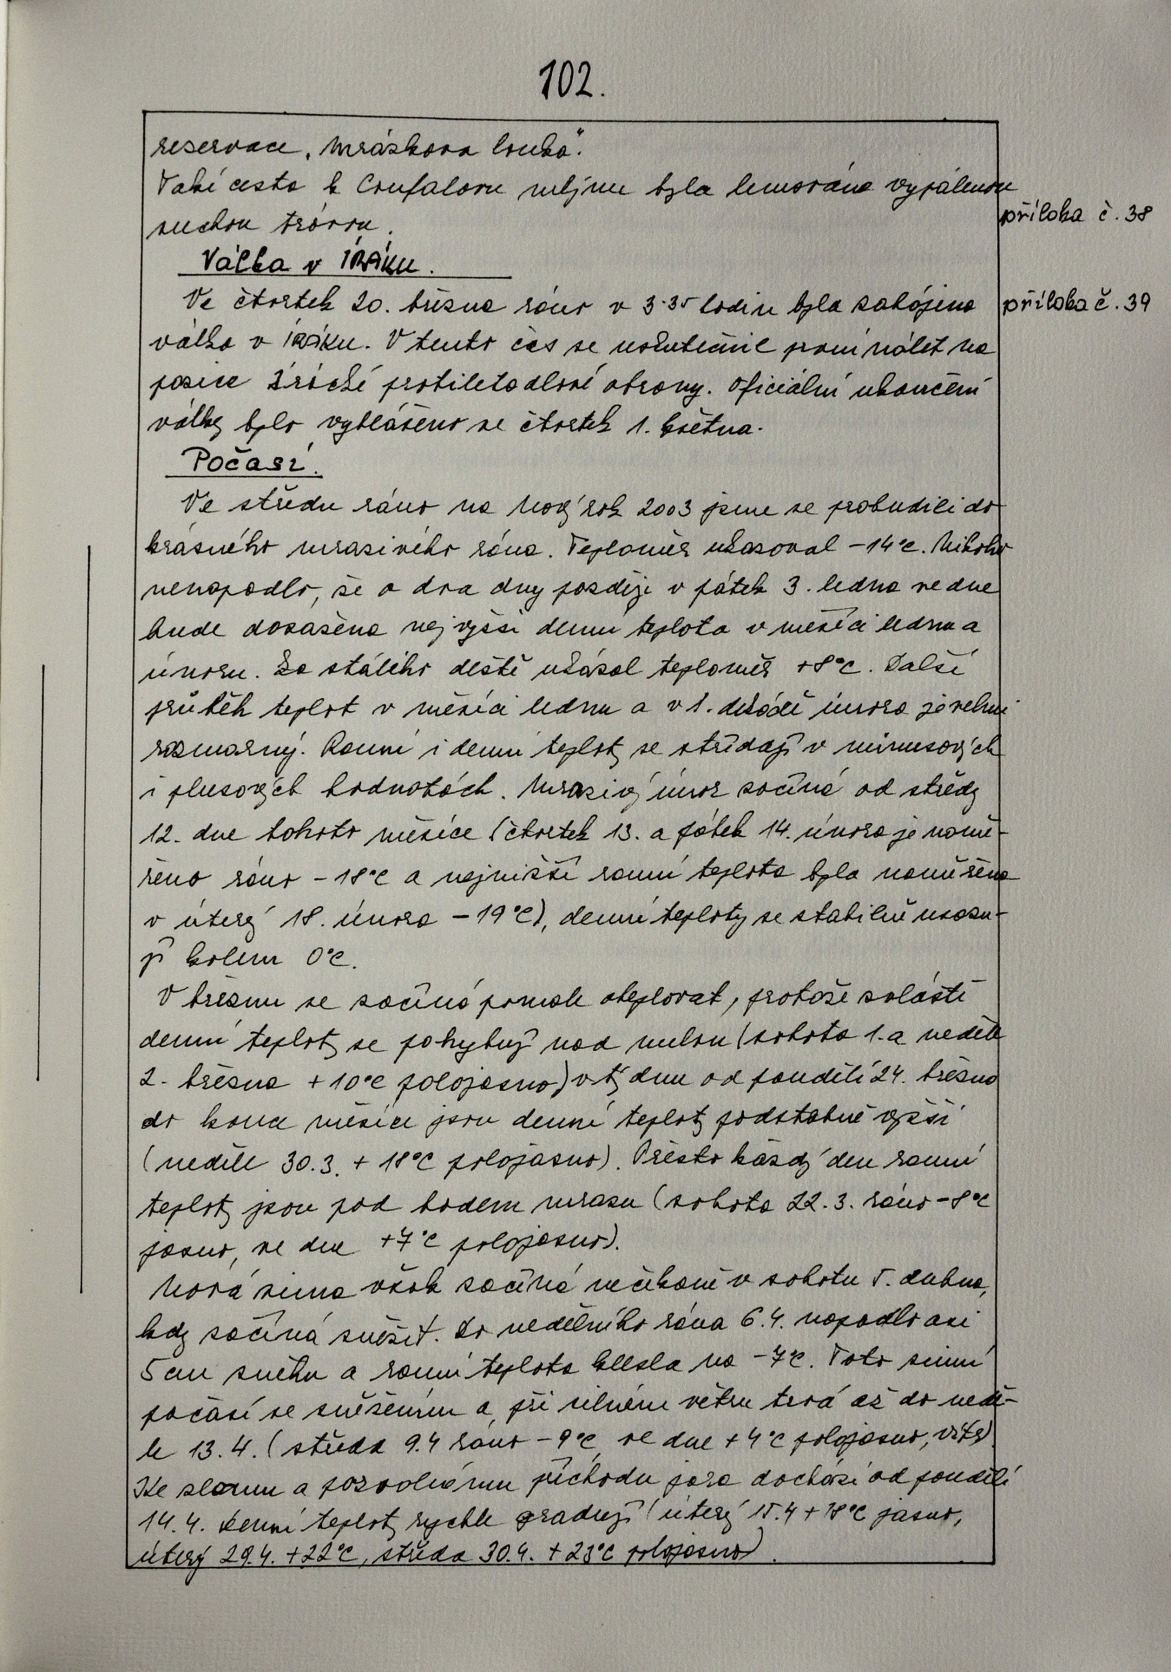 102.
reservace „Mráskova louka".
Také cesta k Coufalovu mlýnu byla lemována vypálenou
příloha č. 38
suchou trávou.
Válka v IRÁKU.
Ve čtvrtek 20. března ráno v 3.35 hodin byla zahájena
příloha č. 39
válka v IRÁKU. V tento čas se uskutečnil první nálet na
pozice irácké protiletadlové obrany. Oficiální ukončení
války bylo vyhlášeno ve čtvrtek 1. května.
Počasí.
Ve středu ráno na Nový rok 2003 jsme se probudili do
krásného mrazivého rána. Teploměr ukazoval -14°C. Nikoho
nenapadlo, že o dva dny později v pátek 3. ledna ve dne
bude dosažena nejvyšší denní teplota v měsíci lednu a
únoru. Za stálého deště ukázal teploměr +8°C. Další
průběh teplot v měsíci lednu a v 1. dekádě února je velmi
rozmarný. Ranní i denní teploty se střídají v minusových
i plusových hodnotách. Mrazivý únor začíná od středy
12. dne tohoto měsíce (čtvrtek 13. a pátek 14. února je namě-
řeno ráno -18°C a nejnižší ranní teplota byla naměřena
v úterý 18. února -19°C), denní teploty se stabilně usazu-
jí kolem 0°C.
V březnu se začíná pomalu oteplovat, protože zvláště
denní teploty se pohybují nad nulou (sobota 1. a neděle
2. března +10°C polojasno) v tý dnu od pondělí 24. března
do konce měsíce jsou denní teploty podstatně vyšší
(neděle 30.3. +18°C polojasno). Přesto každý den ranní
teploty jsou pod bodem mrazu (sobota 22.3. ráno -8°C
jasno, ve dne +7°C polojasno).
Nová zima však začíná nečekaně v sobotu 5. dubna,
kdy začíná sněžit. Do nedělního rána 6.4. napadlo asi
5 cm sněhu a ranní teplota klesla na -7°C. Toto zimní
počasí se sněžením a při silném větru trvá až do nedě-
le 13.4. (středa 9.4 ráno -9°C, ve dne +4°C polojasno, vítr)
Ke zlomu a pozvolnému příchodu jara dochází od pondělí
14.4. Denní teploty rychle gradují (úterý 15.4 +18°C jasno,
úterý 29.4. +22°C, středa 30.4. +23°C polojasno).